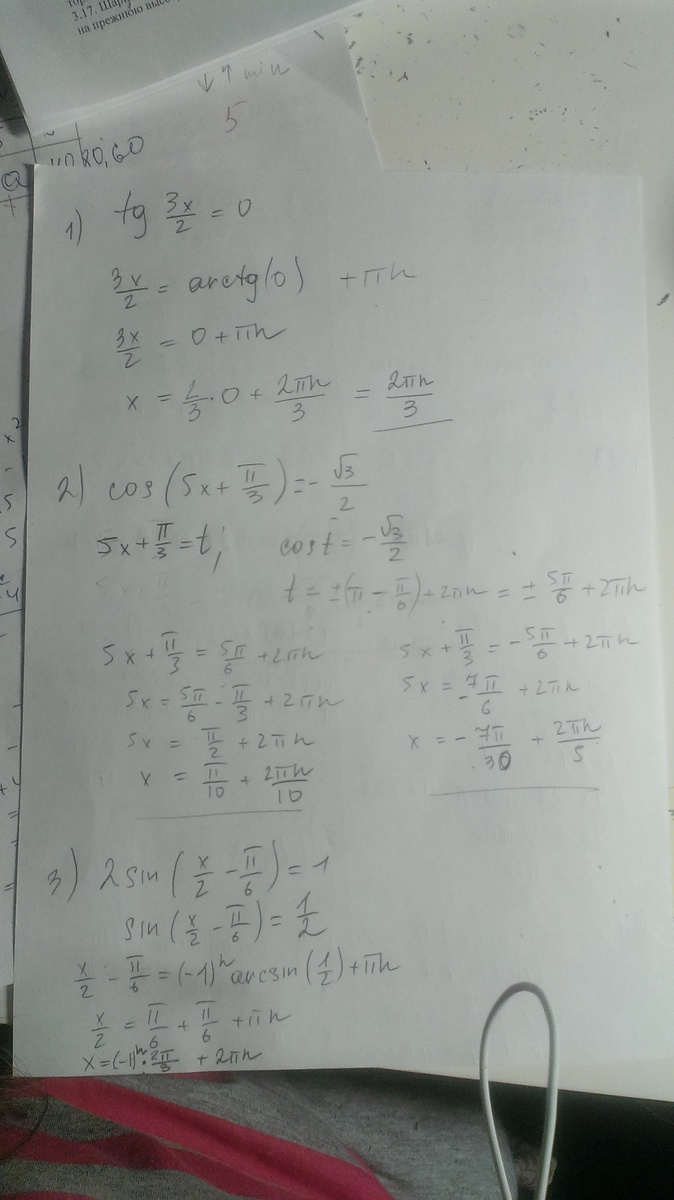 3.17. Шар
на прежнюю выс
↓ 9 min
5
80,60
1) tg 3x/2 = 0
3x/2 = arctg(0) + πn
3x/2 = 0 + πn
x = 2/3 · 0 + 2πn/3 = 2πn/3
2) cos(5x + π/3) = - √3/2
5x + π/3 = t; cos t = - √3/2
t = ±(π - π/6) + 2πn = ± 5π/6 + 2πn
5x + π/3 = 5π/6 + 2πn 5x + π/3 = - 5π/6 + 2πn
5x = 5π/6 - π/3 + 2πn 5x = - 7π/6 + 2πn
5x = π/2 + 2πn x = - 7π/30 + 2πn/5
x = π/10 + 2πn/10
3) 2 sin(x/2 - π/6) = 1
sin(x/2 - π/6) = 1/2
x/2 - π/6 = (-1)ⁿ arcsin(1/2) + πn
x/2 = π/6 + π/6 + πn
x = (-1)ⁿ · 2π/3 + 2πn